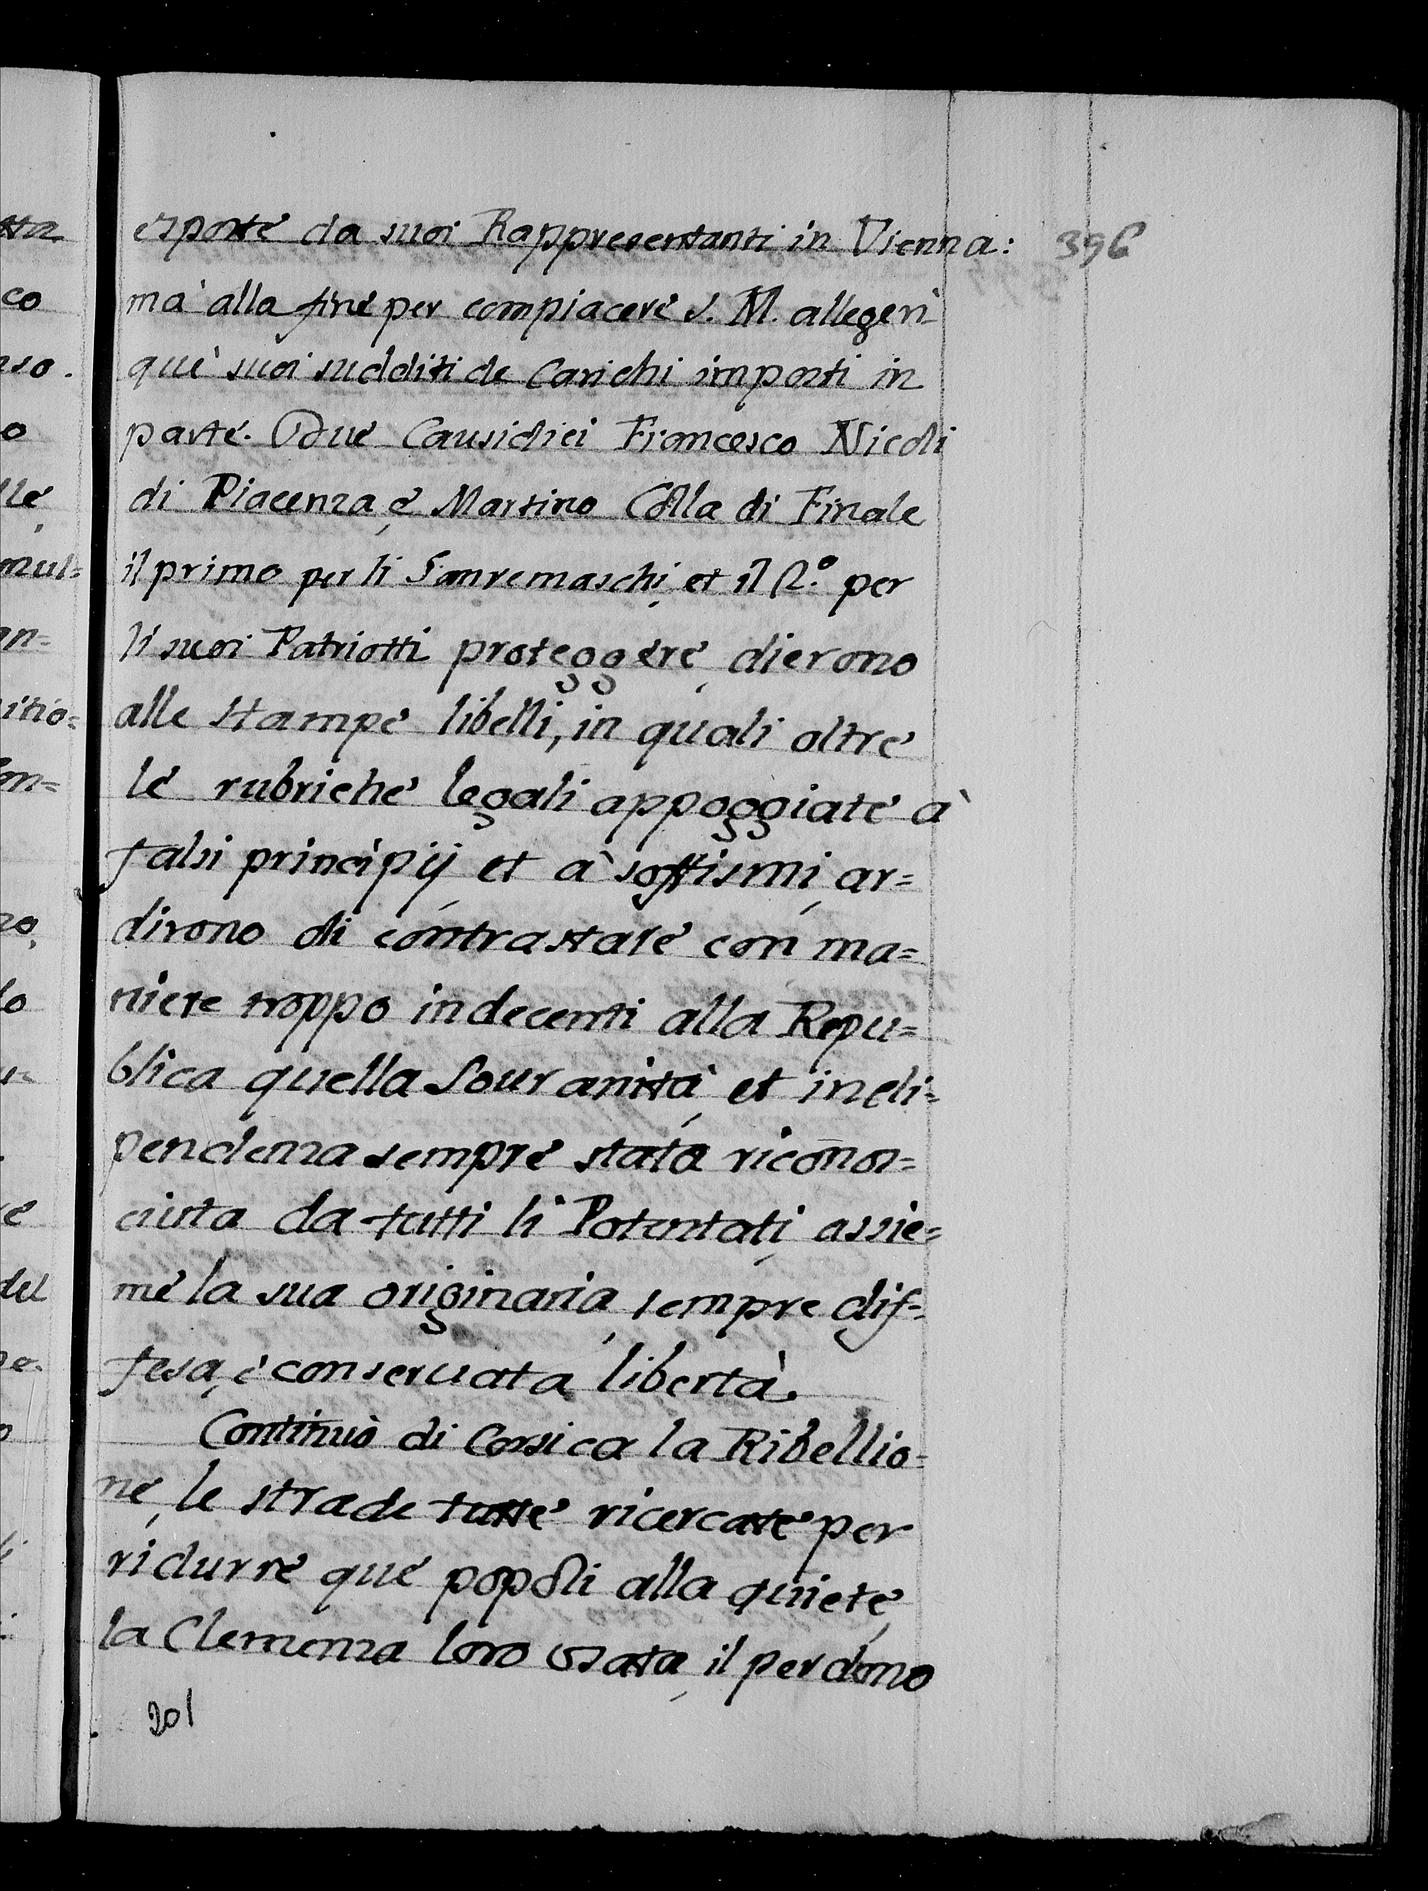 esposte da suoi Rappresentanti in Vienna: 396
mà alla fine per compiacere S. M. allegerì
què suoi sudditi de Carichi imposti in
parte. Due Causidici Francesco Nicoli
di Piacenza, è Martino Colla di Finale
il primo per li Sanremaschi, et il 2.º per
li suoi Patriotti proteggere, dierono
alle stampe libelli, in quali oltre
le rubriche legali appoggiate à
falsi principÿ, et à soffismi, ar=
dirono di contrastare con ma=
niere troppo indecenti alla Repu=
blica quella Souranità, et indi=
pendenza sempre stata riconos=
ciuta da tutti li Potentati, assie=
me la sua originaria, sempre dif=
fesa, è conseruata libertà.
Continuò di Corsica la Ribellio=
ne, le strade tutte ricercate per
ridurre què popoli alla quiete,
la Clemenza loro usata, il perdono
201